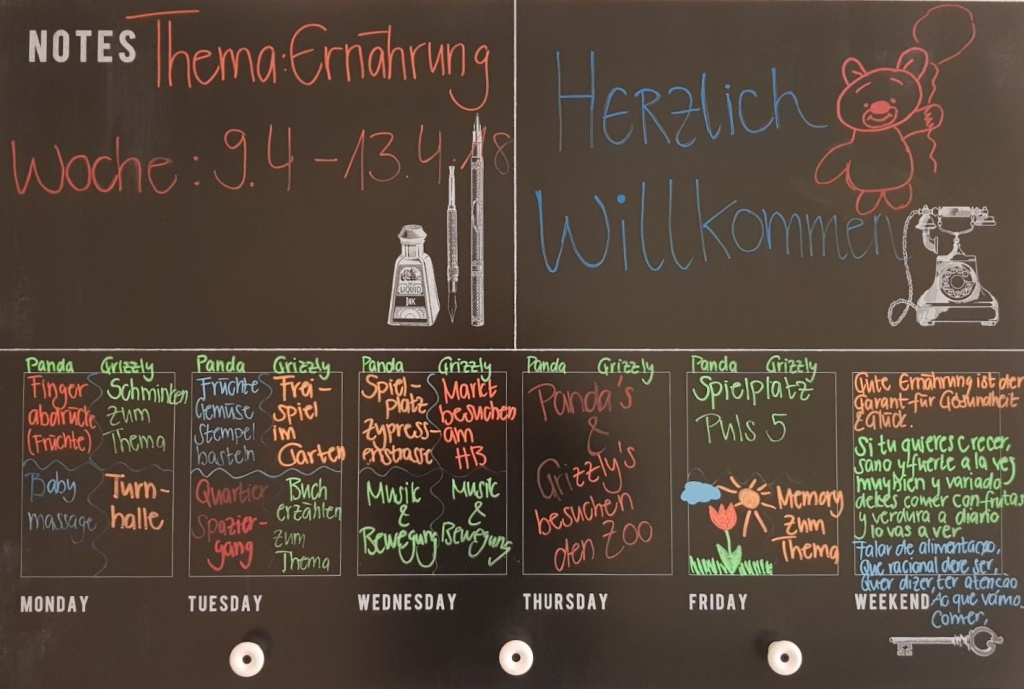 NOTES Thema: Ernährung
Woche: 9.4 - 13.4.18
Herzlich
Willkommen
LIQUID
INK
Panda Grizzly
Finger
abdrücke
(Früchte)
Schminken
zum
Thema
Baby
massage
Turn-
halle
MONDAY
Panda Grizzly
Früchte
Gemüse
Stempel
basteln
Frei-
spiel
im
Garten
Quartier
spazier-
gang
Buch
erzählen
zum
Thema
TUESDAY
Panda Grizzly
Spiel-
platz
zypress-
enstrasse
Markt
besuchen
am
HB
Musik
&
Bewegung
Musik
&
Bewegung
WEDNESDAY
Panda Grizzly
Panda's
&
Grizzly's
besuchen
den Zoo
THURSDAY
Panda Grizzly
Spielplatz
Puls 5
Memory
zum
Thema
FRIDAY
Gute Ernährung ist der
Garant für Gesundheit
& Glück.
Si tu quieres crecer,
sano y fuerte a la vez
muy bien y variado
debes comer con frutas
y verdura a diario
y lo vas a ver
Falar de alimentação,
Que racional dere ser,
Quer dizer, ter atenção
Ao que vamo
comer,
WEEKEND